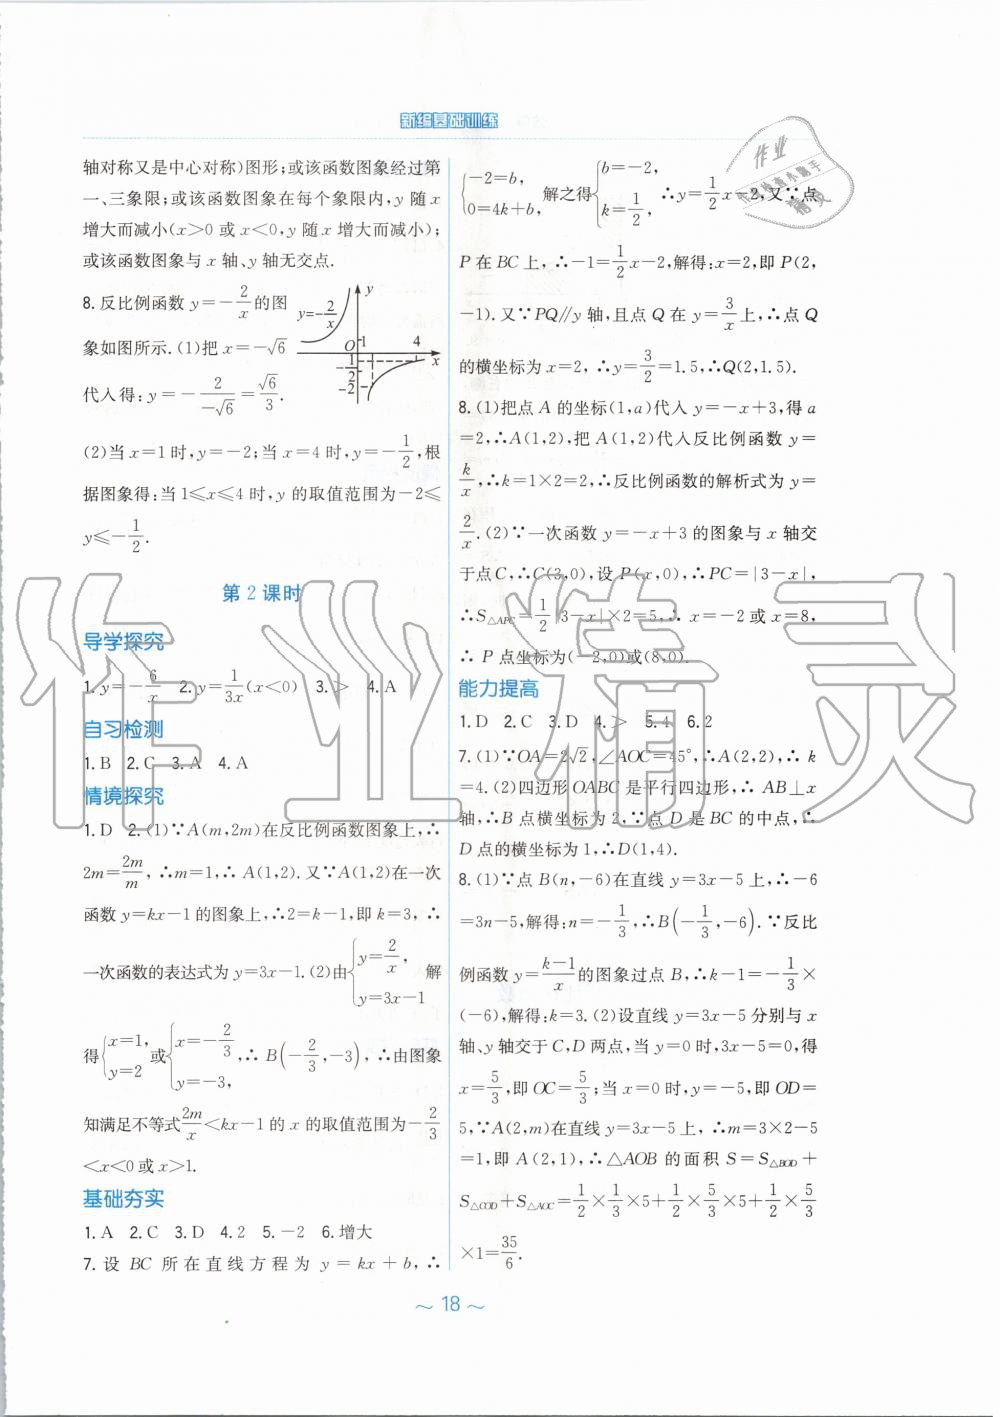 新编基础训练
轴对称又是中心对称)图形;或该函数图象经过第
一、三象限;或该函数图象在每个象限内,y 随 x
增大而减小(x>0 或 x<0,y 随 x 增大而减小);
或该函数图象与 x 轴、y 轴无交点.
8. 反比例函数 y=-2/x 的图
象如图所示.(1)把 x=-√6
代入得:y=-2/(-√6)=√6/3.
y=-2/x
y
O
1
4
x
-1/2
-2
(2)当 x=1 时,y=-2;当 x=4 时,y=-1/2,根
据图象得:当 1≤x≤4 时,y 的取值范围为-2≤
y≤-1/2.
第 2 课时
导学探究
1. y=-6/x 2. y=1/3x(x<0) 3. > 4. A
自习检测
1. B 2. C 3. A 4. A
情境探究
1. D 2. (1)∵A(m,2m)在反比例函数图象上,∴
2m=2m/m,∴m=1,∴A(1,2).又∵A(1,2)在一次
函数 y=kx-1 的图象上,∴2=k-1,即 k=3,∴
一次函数的表达式为 y=3x-1.(2)由{y=2/x, y=3x-1 解
得{x=1, y=2 或{x=-2/3, y=-3, ∴B(-2/3,-3),∴由图象
知满足不等式2m/x<kx-1 的 x 的取值范围为-2/3
<x<0 或 x>1.
基础夯实
1. A 2. C 3. D 4. 2 5. -2 6. 增大
7. 设 BC 所在直线方程为 y=kx+b,∴
{-2=b, 0=4k+b, 解之得{b=-2, k=1/2, ∴y=1/2x-2,又∵点
P 在 BC 上,∴-1=1/2x-2,解得:x=2,即 P(2,
-1).又∵PQ∥y 轴,且点 Q 在 y=3/x上,∴点 Q
的横坐标为 x=2,∴y=3/2=1.5,∴Q(2,1.5).
8. (1)把点 A 的坐标(1,a)代入 y=-x+3,得 a
=2,∴A(1,2),把 A(1,2)代入反比例函数 y=
k/x,∴k=1×2=2,∴反比例函数的解析式为 y=
2/x.(2)∵一次函数 y=-x+3 的图象与 x 轴交
于点 C,∴C(3,0),设 P(x,0),∴PC=|3-x|,
∴S△APC=1/2|3-x|×2=5,∴x=-2 或 x=8,
∴P 点坐标为(-2,0)或(8,0).
能力提高
1. D 2. C 3. D 4. > 5. 4 6. 2
7. (1)∵OA=2√2,∠AOC=45°,∴A(2,2),∴k
=4.(2)四边形 OABC 是平行四边形,∴AB⊥x
轴,∴B 点横坐标为 2,∵点 D 是 BC 的中点,∴
D 点的横坐标为 1,∴D(1,4).
8. (1)∵点 B(n,-6)在直线 y=3x-5 上,∴-6
=3n-5,解得:n=-1/3,∴B(-1/3,-6).∵反比
例函数 y=k-1/x的图象过点 B,∴k-1=-1/3×
(-6),解得:k=3.(2)设直线 y=3x-5 分别与 x
轴、y 轴交于 C,D 两点,当 y=0 时,3x-5=0,得
x=5/3,即 OC=5/3;当 x=0 时,y=-5,即 OD=
5,∵A(2,m)在直线 y=3x-5 上,∴m=3×2-5
=1,即 A(2,1),∴△AOB 的面积 S=S△BOD+
S△COD+S△AOC=1/2×1/3×5+1/2×5/3×5+1/2×5/3
×1=35/6.
~ 18 ~
作业精灵